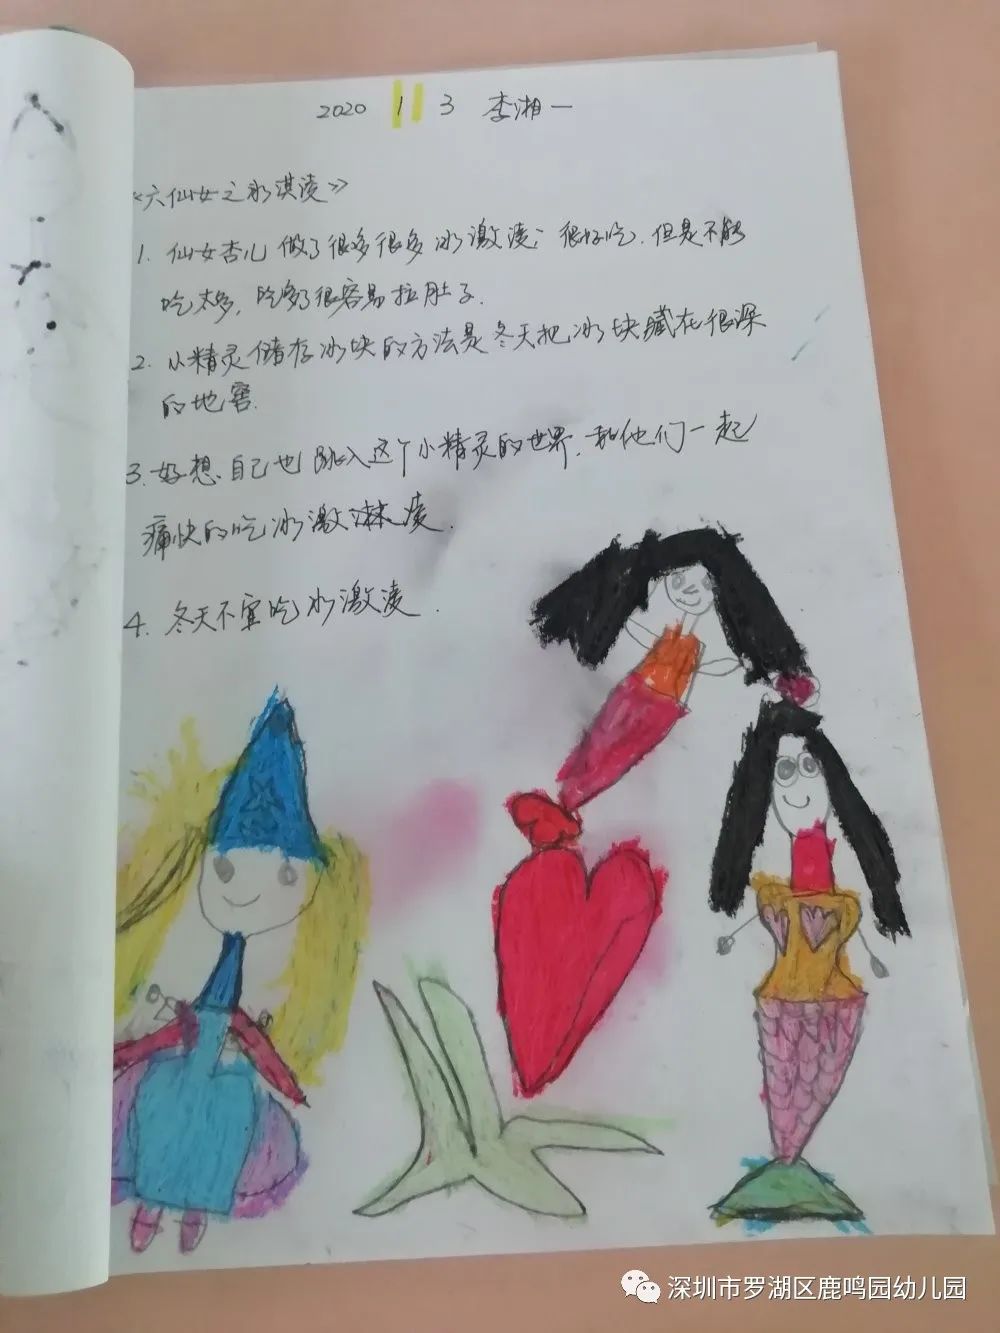 2020 11 3 李湘一
《六仙女之冰淇凌》
1. 仙女杏儿做了很多很多冰激凌；很好吃．但是不能
吃太多，吃多了很容易拉肚子．
2. 从精灵储存冰块的方法是冬天把冰块藏在很深
的地窖．
3. 好想自己也跳入这个小精灵的世界．和他们一起
痛快的吃冰激淋凌．
4. 冬天不宜吃冰激凌．
深圳市罗湖区鹿鸣园幼儿园